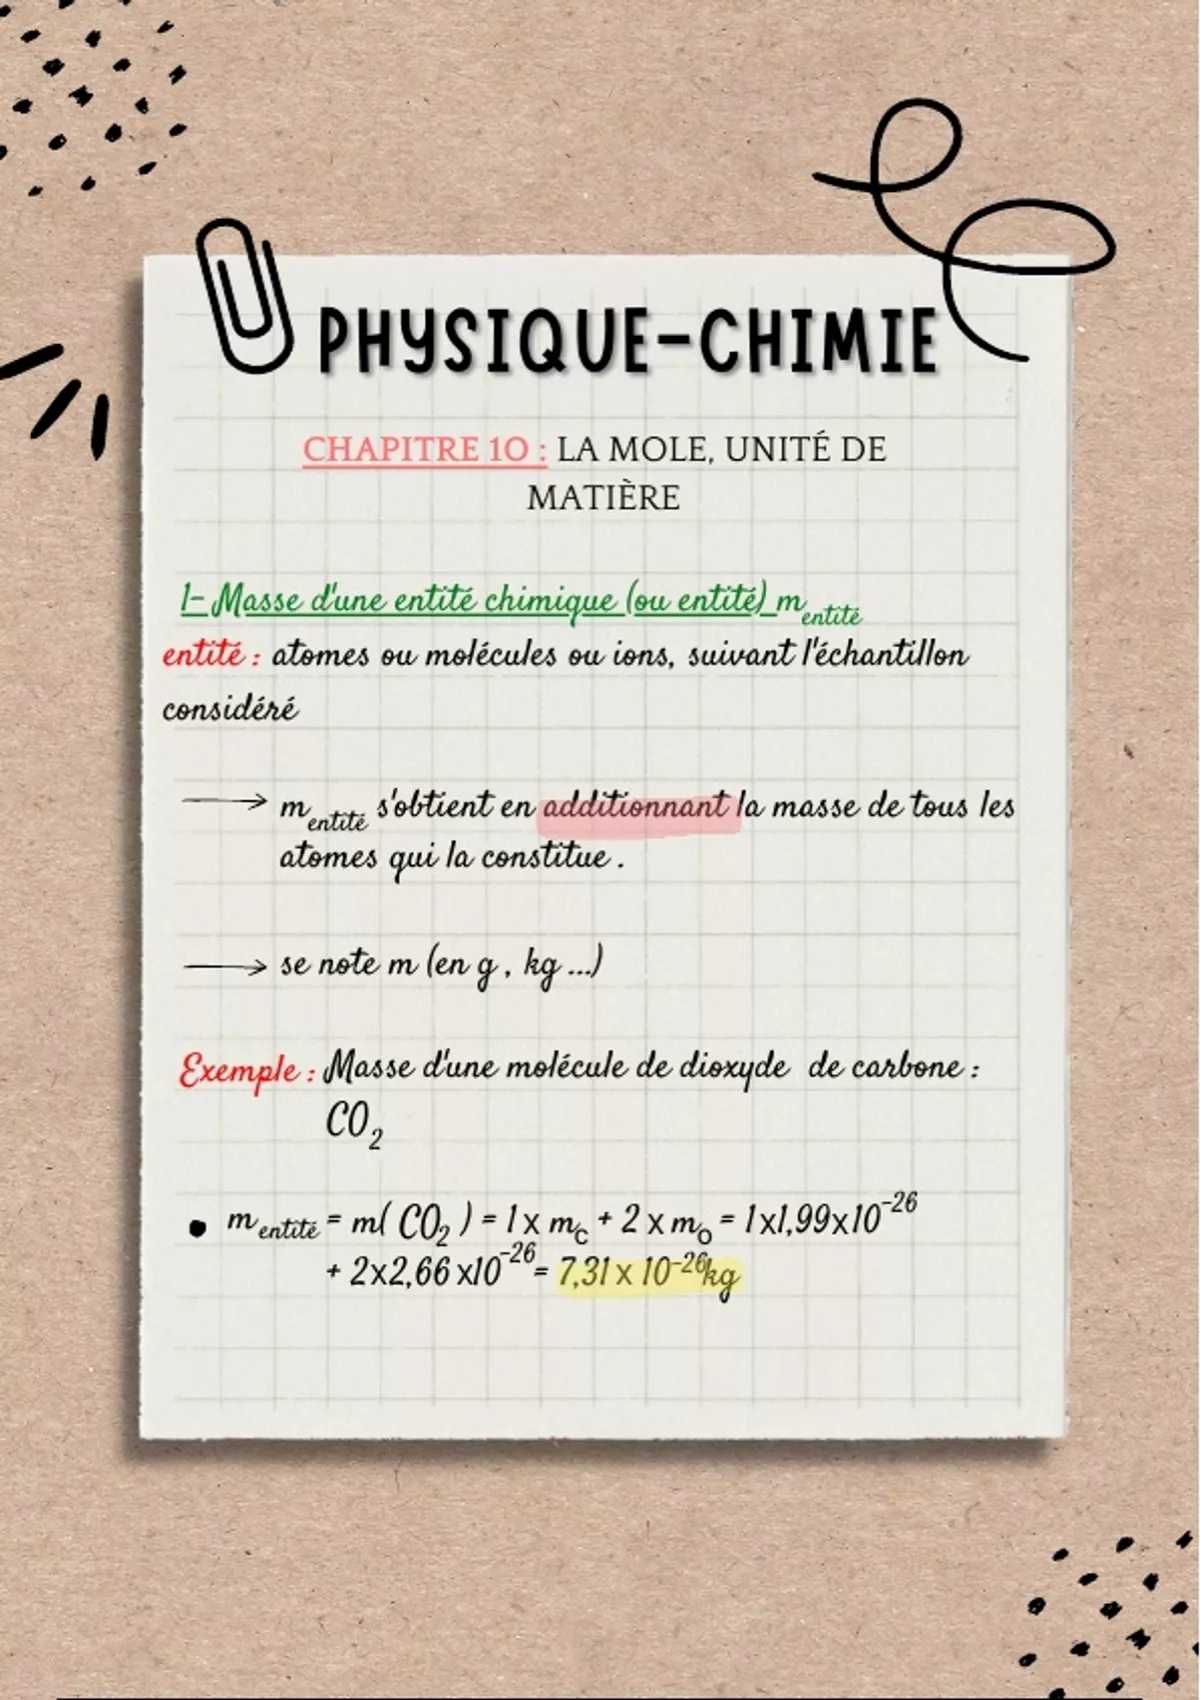 PHYSIQUE-CHIMIE
CHAPITRE 10 : LA MOLE, UNITÉ DE
MATIÈRE
1- Masse d'une entité chimique (ou entité) m_entité
entité : atomes ou molécules ou ions, suivant l'échantillon
considéré
→ m_entité s'obtient en additionnant la masse de tous les
atomes qui la constitue .
→ se note m (en g , kg ...)
Exemple : Masse d'une molécule de dioxyde de carbone :
CO₂
• m_entité = m( CO₂ ) = 1 x m_C + 2 x m_O = 1x1,99x10⁻²⁶
+ 2x2,66 x10⁻²⁶ = 7,31 x 10⁻²⁶kg